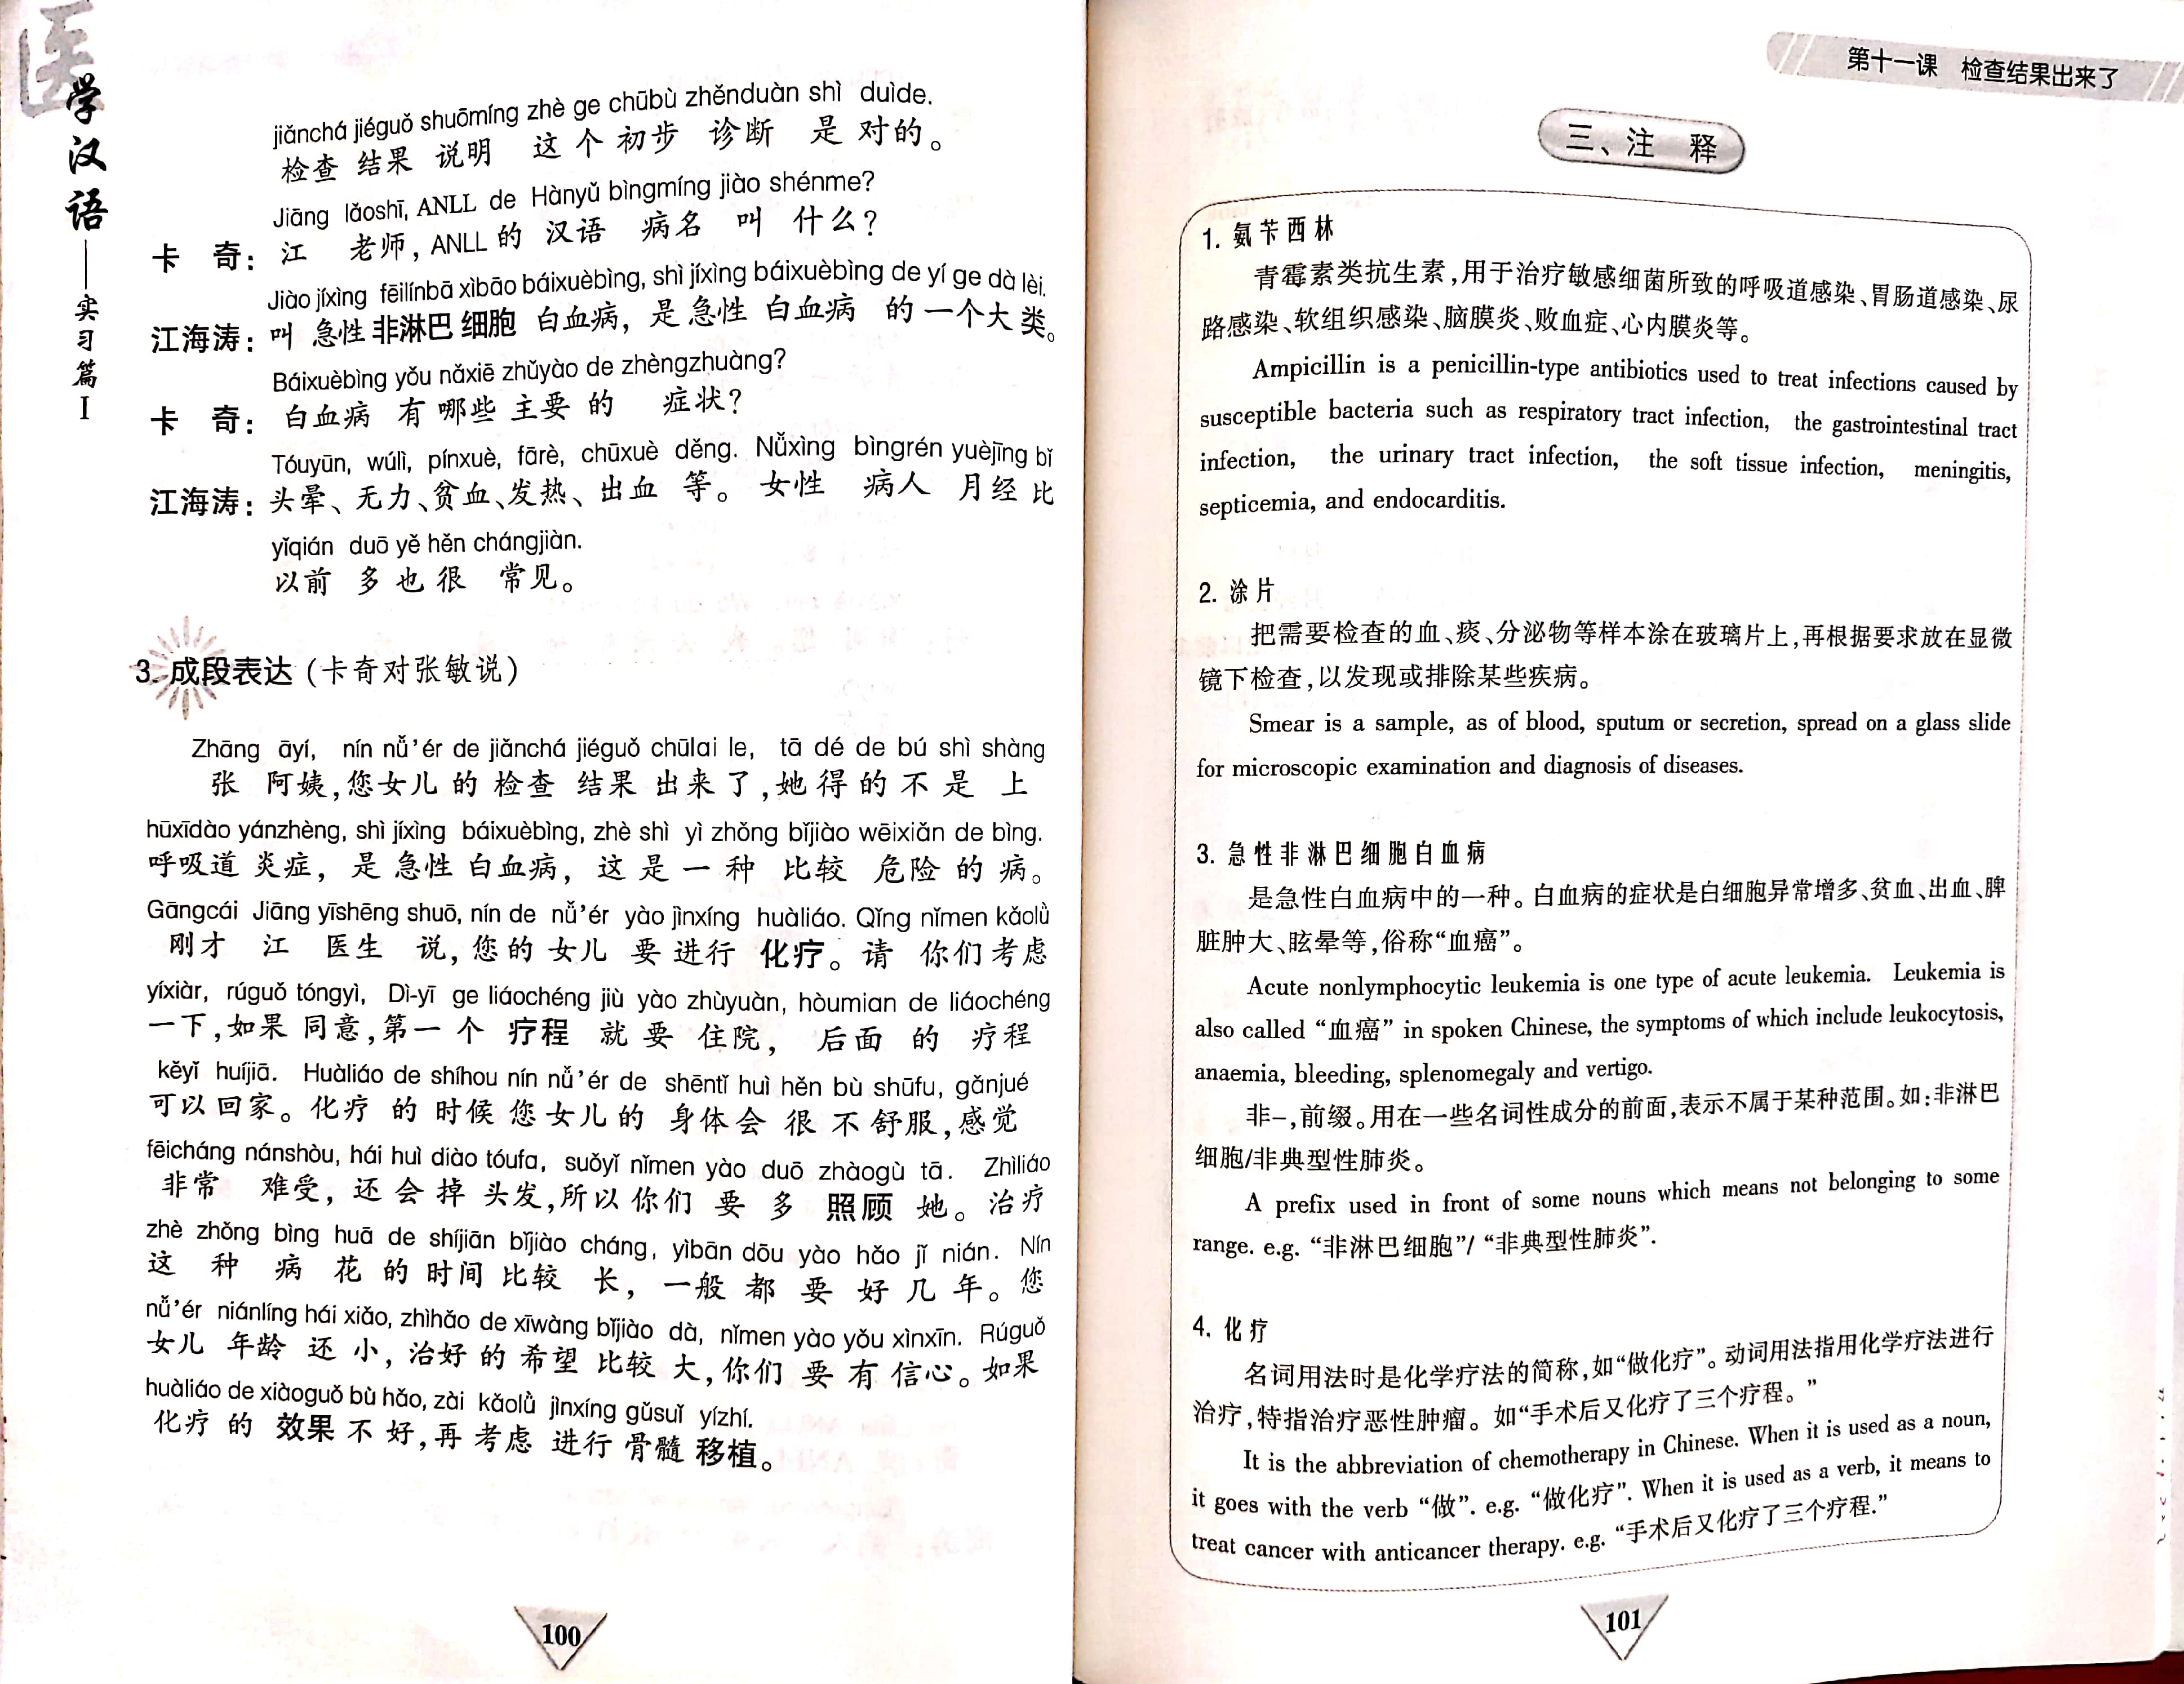 医
学汉语——实习篇 I
jiǎnchá jiéguǒ shuōmíng zhè ge chūbù zhěnduàn shì duìde.
检查 结果 说明 这个初步 诊断 是 对的。
Jiāng lǎoshī, ANLL de Hànyǔ bìngmíng jiào shénme?
卡 奇：江 老师，ANLL 的 汉语 病名 叫 什么？
Jiào jíxìng fēilínbā xìbāo báixuèbìng, shì jíxìng báixuèbìng de yí ge dà lèi.
江海涛：叫 急性 非淋巴 细胞 白血病，是 急性 白血病 的 一个大 类。
Báixuèbìng yǒu nǎxiē zhǔyào de zhèngzhuàng?
卡 奇：白血病 有 哪些 主要 的 症状？
Tóuyūn, wúlì, pínxuè, fārè, chūxuè děng. Nǚxìng bìngrén yuèjīng bǐ
江海涛：头晕、无力、贫血、发热、出血 等。 女性 病人 月经 比
yǐqián duō yě hěn chángjiàn.
以前 多 也 很 常见。
3. 成段表达（卡奇对张敏说）
Zhāng āyí, nín nǚ'ér de jiǎnchá jiéguǒ chūlai le, tā dé de bú shì shàng
张 阿姨，您女儿 的 检查 结果 出来 了，她 得 的 不 是 上
hūxīdào yánzhèng, shì jíxìng báixuèbìng, zhè shì yì zhǒng bǐjiào wēixiǎn de bìng.
呼吸道 炎症，是 急性 白血病，这 是 一 种 比较 危险 的 病。
Gāngcái Jiāng yīshēng shuō, nín de nǚ'ér yào jìnxíng huàliáo. Qǐng nǐmen kǎolǜ
刚才 江 医生 说，您的 女儿 要 进行 化疗。请 你们 考虑
yíxiàr, rúguǒ tóngyì, Dì-yī ge liáochéng jiù yào zhùyuàn, hòumian de liáochéng
一下，如果 同意，第一 个 疗程 就 要 住院， 后面 的 疗程
kěyǐ huíjiā. Huàliáo de shíhou nín nǚ'ér de shēntǐ huì hěn bù shūfu, gǎnjué
可以 回家。化疗 的 时候 您 女儿 的 身体 会 很 不 舒服，感觉
fēicháng nánshòu, hái huì diào tóufa, suǒyǐ nǐmen yào duō zhàogù tā. Zhìliáo
非常 难受，还 会 掉 头发，所以 你们 要 多 照顾 她。治疗
zhè zhǒng bìng huā de shíjiān bǐjiào cháng, yìbān dōu yào hǎo jǐ nián. Nín
这 种 病 花 的 时间 比较 长，一般 都 要 好 几 年。您
nǚ'ér niánlíng hái xiǎo, zhìhǎo de xīwàng bǐjiào dà, nǐmen yào yǒu xìnxīn. Rúguǒ
女儿 年龄 还 小，治好 的 希望 比较 大，你们 要 有 信心。如果
huàliáo de xiàoguǒ bù hǎo, zài kǎolǜ jìnxíng gǔsuǐ yízhí.
化疗 的 效果 不 好，再 考虑 进行 骨髓 移植。
100
第十一课 检查结果出来了
三、注 释
1. 氨苄西林
青霉素类抗生素，用于治疗敏感细菌所致的呼吸道感染、胃肠道感染、尿
路感染、软组织感染、脑膜炎、败血症、心内膜炎等。
Ampicillin is a penicillin-type antibiotics used to treat infections caused by
susceptible bacteria such as respiratory tract infection, the gastrointestinal tract
infection, the urinary tract infection, the soft tissue infection, meningitis,
septicemia, and endocarditis.
2. 涂片
把需要检查的血、痰、分泌物等样本涂在玻璃片上，再根据要求放在显微
镜下检查，以发现或排除某些疾病。
Smear is a sample, as of blood, sputum or secretion, spread on a glass slide
for microscopic examination and diagnosis of diseases.
3. 急性非淋巴细胞白血病
是急性白血病中的一种。白血病的症状是白细胞异常增多、贫血、出血、脾
脏肿大、眩晕等，俗称“血癌”。
Acute nonlymphocytic leukemia is one type of acute leukemia. Leukemia is
also called “血癌” in spoken Chinese, the symptoms of which include leukocytosis,
anaemia, bleeding, splenomegaly and vertigo.
非-，前缀。用在一些名词性成分的前面，表示不属于某种范围。如：非淋巴
细胞/非典型性肺炎。
A prefix used in front of some nouns which means not belonging to some
range. e.g. “非淋巴细胞”/ “非典型性肺炎”.
4. 化疗
名词用法时是化学疗法的简称，如“做化疗”。动词用法指用化学疗法进行
治疗，特指治疗恶性肿瘤。如“手术后又化疗了三个疗程。”
It is the abbreviation of chemotherapy in Chinese. When it is used as a noun,
it goes with the verb “做”. e.g. “做化疗”. When it is used as a verb, it means to
treat cancer with anticancer therapy. e.g. “手术后又化疗了三个疗程.”
101